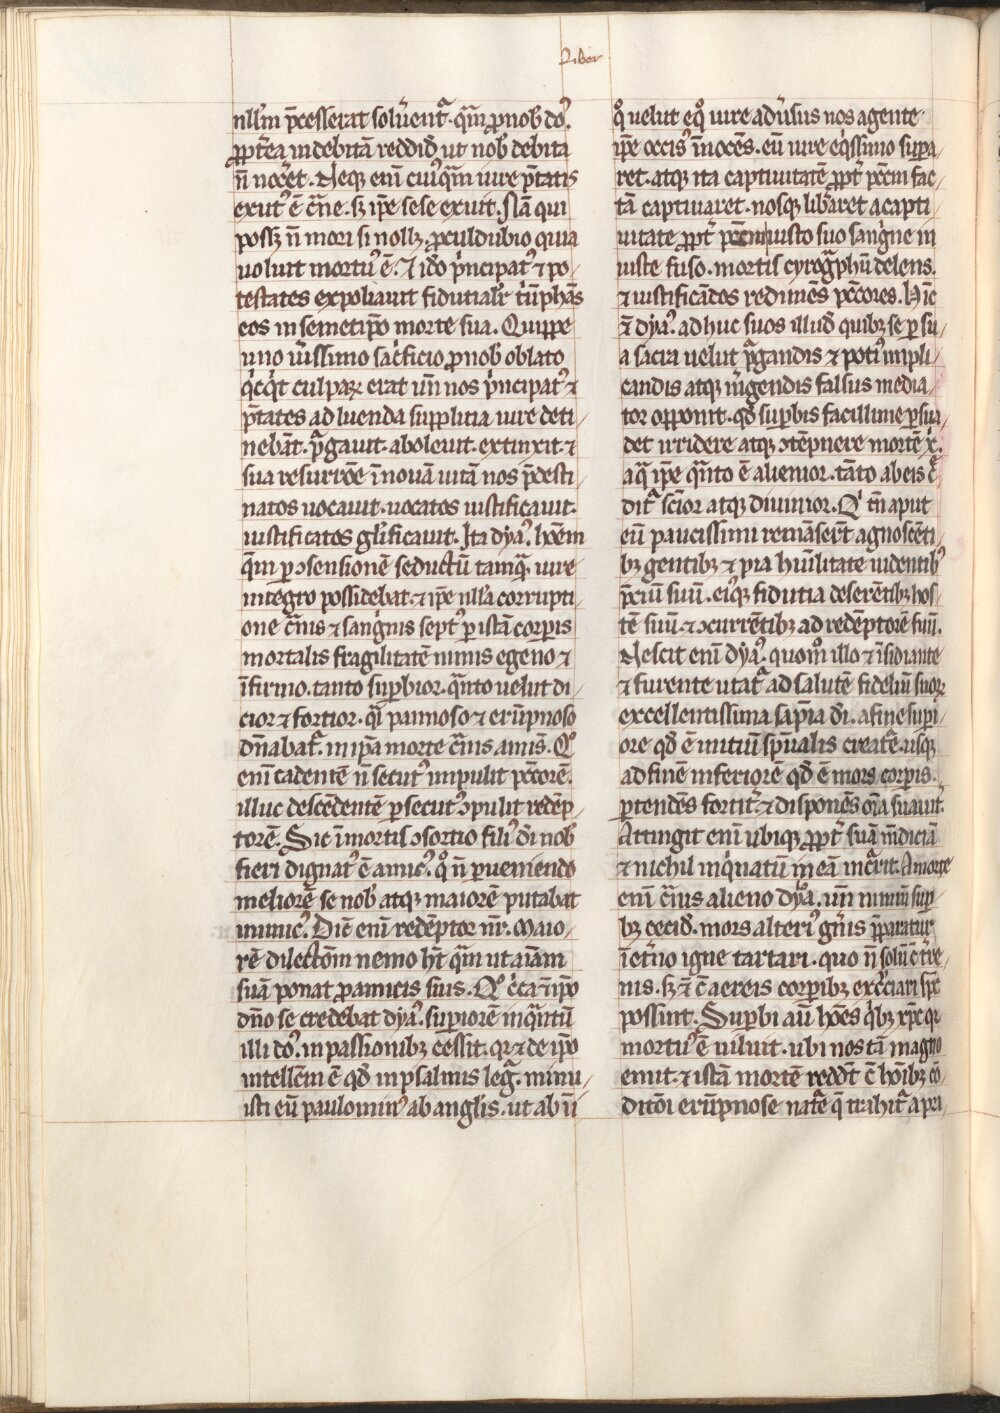 Liber
nllm p̄cesserat solu̓entᷓ. qᷓm ꝓ nob̓ do᷒.
ꝓpt̓ea indebitā reddid̓ ut nob̓ debita
n̄ noc̓et. Neqꝫ eni̅ cui᷒qᷓm iure p̄tatis
exut᷒ ē c̄ne. sꝫ ip̄e sese exuit. Nā qui
possꝫ n̄ mori si nollꝫ. ꝓculdubio quia
uoluit mortu᷒ ē. ⁊ iđo pͥncipat᷒ ⁊ po-
testates expoliauit fidutialr̓ tͥūphās
eos in semetip̄o morte sua. Quippe
uno u̓issimo sac̓ficio ꝓ nob̓ oblato
qͥcqͥt culpaꝝ erat un̄ nos pͥncipat᷒ ⁊
p̄tates ad luenda supplitia iure deti/
nebāt. pᷓgauit. aboleuit. extinxit. ⁊
sua resurrōe ī nouā uitā nos p̄desti
natos uocauit. uocatos iustificauit.
iustificatos gl̓ificauit. Ita dya᷒. hoēm
qᷓm ꝑ ↄsensionē seductū tamqᷓ iure
integro possidebat. ⁊ ip̄e nll̓a corrupti/
one c̄nis ⁊ sangͥnis sept᷒ ꝑ istā corꝑis
mortalis fragilitatē nimis egeno ⁊
īfirmo. tanto suꝑbior. qᷓnto uelut di/
cior ⁊ fortior. qͣi pannoso ⁊ eru̅pnoso
dn̄abatᷓ. in ip̄a morte c̄nis amis̄. Qͦ
eni̅ cadentē n̄ secut᷒ impulit pc̄c̄orē.
illuc desce̅dentē ꝑsecut᷒ ↄpulit redēp
torē. Sic ī mortis ↄsortio fili᷒ đi nob̓
fieri dignat᷒ ē amic᷒. qͦ n̄ ꝑueniendo
meliorē se nob̓ atqꝫ maiorē putabat
inimic᷒. Dic̄ eni̅ redēptor nr̄. Maio/
rē dilectōm nemo h̄t qᷓm ut aīam
suā ponat ꝓ amicis suis. Qͦ c̓ca ⁊ ip̄o
dn̄o se credebat dya᷒. suꝑiorē inqᷓntū
illi do᷒. in passionibꝫ cessit. qꝛ ⁊ de ip̄o
intellc̄m ē qđ in psalmis legᷓ. minu/
isti eū paulomin᷒ ab anglis. ut ab ū
qͦ uelut eqͦ iure adu̓sus nos agente
ip̄e occis᷒ īnocēs. eū iure eqͥssimo suꝑa/
ret. atqꝫ ita captiuitatē ꝓpt̓ pc̄cm fac/
tā captiuaret. nosqꝫ lib̓aret a capti/
uitate ꝓpt̓ pc̄cm iusto suo sangͥne in
iuste fuso. mortis cyrogᷓphū delens.
⁊ iustificādos redimēs pc̄c̄ores. Hīc
⁊̄ dya᷒. adhuc suos illud̓ quibꝫ se ꝑ su/
a sacra uelut pᷓgandis ⁊ poti᷒ impli/
candis atqꝫ m̓gendis falsus media/
tor opponit. qđ suꝑbis facillime ꝑsua/
det irridere atqꝫ ↄtēpnere mortē x̄.
a qᷓ ip̄e qᷓnto ē alienior. tāto ab eis c̓/
ditᷓ sc̄ior atqꝫ diuinior. Qͥ tn̄ aput
eū paucissimi remāser̄t agnoscēti/
bꝫ gentibꝫ ⁊ pia hu̅ilitate uidentib᷒
p̄ciū suū. ei᷒qꝫ fidutia deserētibꝫ hos/
tē suū. ⁊ ↄcurrētibꝫ ad redēptorē suū.
Nescit eni̅ dya᷒. quom̊ illo ⁊ īsidiante
⁊ furente utatᷓ ad salutē fideliū suoꝝ
excellentissima sap̄ia đi. a fine suꝑi/
ore qđ ē initiū sp̄ualis creat̓e. usqꝫ
ad finē inferiorē qđ ē mors corꝑis.
ꝑtendēs fortit̓ ⁊ disponēs oīa suauit̓.
Attingit eni̅ ubiqꝫ ꝓpt̓ suā mūdiciā
⁊ nichil inqͥnatū in eā inc̓rit. A morte
eni̅ c̄nis alieno dya. un̄ nimiū suꝑ/
bꝫ cecid̓. mors alteri᷒ gn̄is p̄paratur
ī et̓no igne tartari. quo n̄ solū c̄ t̓re/
nis. sꝫ ⁊ c̄ aereis corꝑibꝫ exc̓ciari sp̄c
possint. Suꝑbi aū hōēs qͥbꝫ xp̄c qꝛ
mortu᷒ ē uiluit. ubi nos tā magno
emit. ⁊ istā mortē redd̄t c̄ hoīibꝫ cō/
ditōi eru̅pnose nat̓e q̄ trahitᷓ a pri